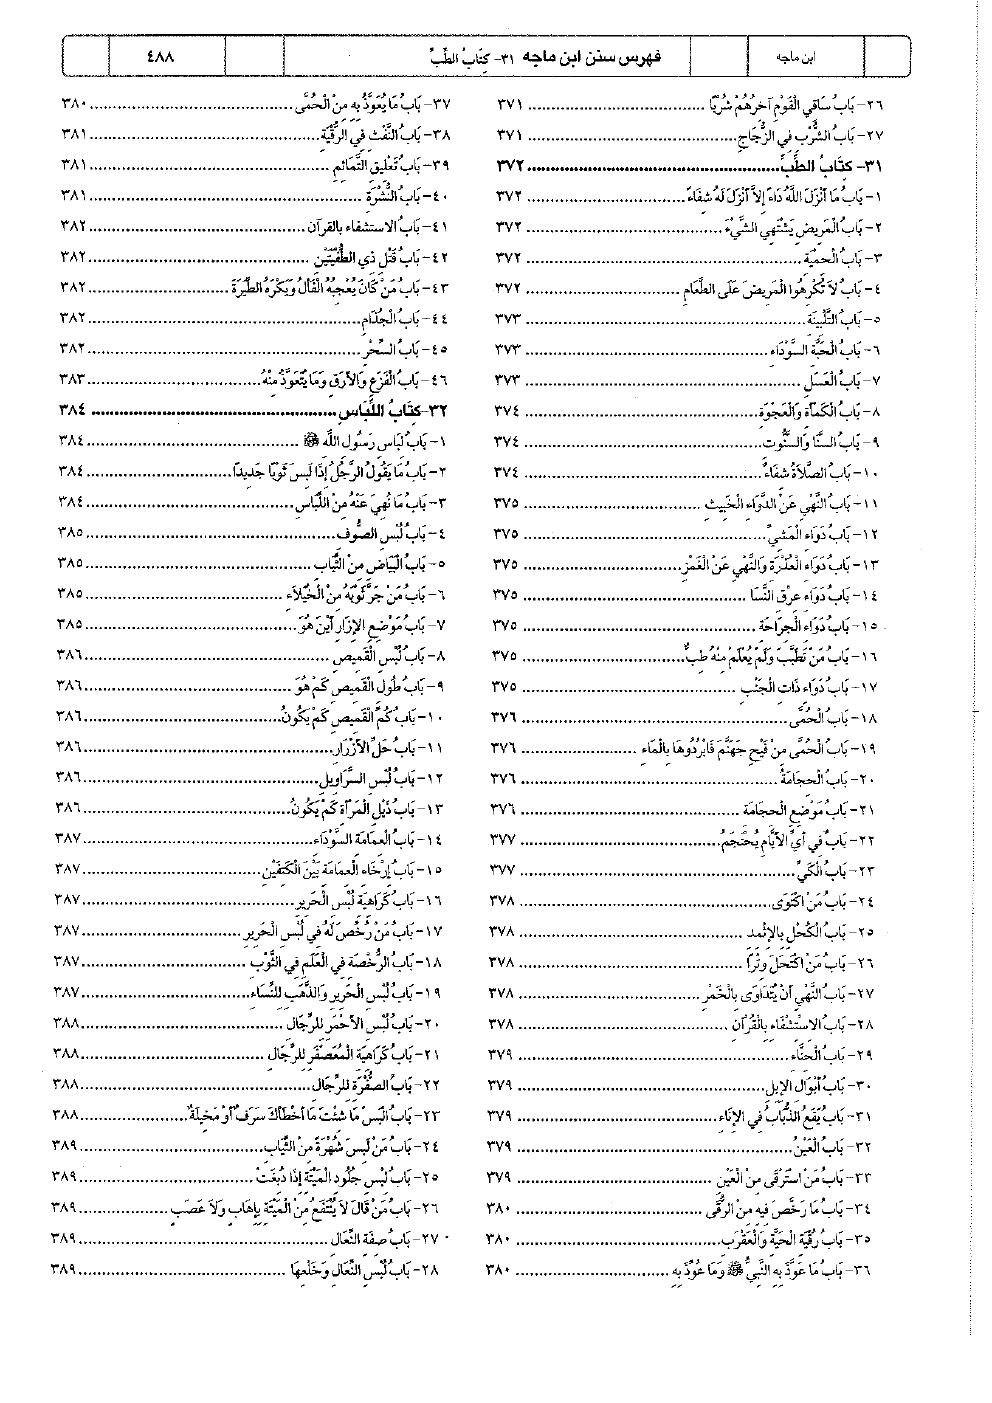 ابن ماجه
فهرس سنن ابن ماجه ٣١- كِتَابُ الطِّبِّ
٤٨٨
٢٦- بَابُ سَاقِي الْقَوْمِ آخِرُهُمْ شُرْبًا ........ ٣٧١
٢٧- بَابُ الشُّرْبِ فِي الزُّجَاجِ ........ ٣٧١
٣١- كِتَابُ الطِّبِّ ........ ٣٧٢
١- بَابُ مَا أَنْزَلَ اللَّهُ دَاءً إِلاَّ أَنْزَلَ لَهُ شِفَاءً ........ ٣٧٢
٢- بَابُ الْمَرِيضِ يَشْتَهِي الشَّيْءَ ........ ٣٧٢
٣- بَابُ الْحِمْيَةِ ........ ٣٧٢
٤- بَابُ لاَ تُكْرِهُوا الْمَرِيضَ عَلَى الطَّعَامِ ........ ٣٧٢
٥- بَابُ التَّلْبِينَةِ ........ ٣٧٣
٦- بَابُ الْحَبَّةِ السَّوْدَاءِ ........ ٣٧٣
٧- بَابُ الْعَسَلِ ........ ٣٧٣
٨- بَابُ الْكَمْأَةِ وَالْعَجْوَةِ ........ ٣٧٤
٩- بَابُ السَّنَا وَالسَّنُّوتِ ........ ٣٧٤
١٠- بَابُ الصَّلاَةُ شِفَاءٌ ........ ٣٧٤
١١- بَابُ النَّهْيِ عَنْ الدَّوَاءِ الْخَبِيثِ ........ ٣٧٥
١٢- بَابُ دَوَاءِ الْمَشْيِ ........ ٣٧٥
١٣- بَابُ دَوَاءِ الْعُذْرَةِ وَالنَّهْيِ عَنْ الْغَمْزِ ........ ٣٧٥
١٤- بَابُ دَوَاءِ عِرْقِ النَّسَا ........ ٣٧٥
١٥- بَابُ دَوَاءِ الْجِرَاحَةِ ........ ٣٧٥
١٦- بَابُ مَنْ تَطَبَّبَ وَلَمْ يُعْلَمْ مِنْهُ طِبٌّ ........ ٣٧٥
١٧- بَابُ دَوَاءِ ذَاتِ الْجَنْبِ ........ ٣٧٥
١٨- بَابُ الْحُمَّى ........ ٣٧٦
١٩- بَابُ الْحُمَّى مِنْ فَيْحِ جَهَنَّمَ فَابْرُدُوهَا بِالْمَاءِ ........ ٣٧٦
٢٠- بَابُ الْحِجَامَةُ ........ ٣٧٦
٢١- بَابُ مَوْضِعِ الْحِجَامَةِ ........ ٣٧٦
٢٢- بَابُ فِي أَيِّ الأَيَّامِ يُحْتَجَمُ ........ ٣٧٧
٢٣- بَابُ الْكَيِّ ........ ٣٧٧
٢٤- بَابُ مَنْ اكْتَوَى ........ ٣٧٨
٢٥- بَابُ الْكُحْلِ بِالإِثْمِدِ ........ ٣٧٨
٢٦- بَابُ مَنْ اكْتَحَلَ وِتْرًا ........ ٣٧٨
٢٧- بَابُ النَّهْيِ أَنْ يُتَدَاوَى بِالْخَمْرِ ........ ٣٧٨
٢٨- بَابُ الاِسْتِشْفَاءِ بِالْقُرْآنِ ........ ٣٧٨
٢٩- بَابُ الْحِنَّاءِ ........ ٣٧٩
٣٠- بَابُ أَبْوَالِ الإِبِلِ ........ ٣٧٩
٣١- بَابُ يَقَعُ الذُّبَابُ فِي الإِنَاءِ ........ ٣٧٩
٣٢- بَابُ الْعَيْنُ ........ ٣٧٩
٣٣- بَابُ مَنْ اسْتَرْقَى مِنْ الْعَيْنِ ........ ٣٧٩
٣٤- بَابُ مَا رَخَّصَ فِيهِ مِنْ الرُّقَى ........ ٣٨٠
٣٥- بَابُ رُقْيَةِ الْحَيَّةِ وَالْعَقْرَبِ ........ ٣٨٠
٣٦- بَابُ مَا عَوَّذَ بِهِ النَّبِيُّ ﷺ وَمَا عُوِّذَ بِهِ ........ ٣٨٠
٣٧- بَابُ مَا يُعَوَّذُ بِهِ مِنْ الْحُمَّى ........ ٣٨٠
٣٨- بَابُ النَّفْثِ فِي الرُّقْيَةِ ........ ٣٨١
٣٩- بَابُ تَعْلِيقِ التَّمَائِمِ ........ ٣٨١
٤٠- بَابُ النُّشْرَةِ ........ ٣٨١
٤١- بَابُ الاستشفاء بالقرآن ........ ٣٨٢
٤٢- بَابُ قَتْلِ ذِي الطُّفْيَتَيْنِ ........ ٣٨٢
٤٣- بَابُ مَنْ كَانَ يُعْجِبُهُ الْفَأْلُ وَيَكْرَهُ الطِّيَرَةَ ........ ٣٨٢
٤٤- بَابُ الْجُذَامِ ........ ٣٨٢
٤٥- بَابُ السِّحْرِ ........ ٣٨٢
٤٦- بَابُ الْفَزَعِ وَالأَرَقِ وَمَا يُتَعَوَّذُ مِنْهُ ........ ٣٨٣
٣٢- كِتَابُ اللِّبَاسِ ........ ٣٨٤
١- بَابُ لِبَاسِ رَسُولِ اللَّهِ ﷺ ........ ٣٨٤
٢- بَابُ مَا يَقُولُ الرَّجُلُ إِذَا لَبِسَ ثَوْبًا جَدِيدًا ........ ٣٨٤
٣- بَابُ مَا نُهِيَ عَنْهُ مِنْ اللِّبَاسِ ........ ٣٨٤
٤- بَابُ لُبْسِ الصُّوفِ ........ ٣٨٥
٥- بَابُ الْبَيَاضِ مِنْ الثِّيَابِ ........ ٣٨٥
٦- بَابُ مَنْ جَرَّ ثَوْبَهُ مِنْ الْخُيَلاَءِ ........ ٣٨٥
٧- بَابُ مَوْضِعِ الإِزَارِ أَيْنَ هُوَ ........ ٣٨٥
٨- بَابُ لُبْسِ الْقَمِيصِ ........ ٣٨٦
٩- بَابُ طُولِ الْقَمِيصِ كَمْ هُوَ ........ ٣٨٦
١٠- بَابُ كُمِّ الْقَمِيصِ كَمْ يَكُونُ ........ ٣٨٦
١١- بَابُ حَلِّ الأَزْرَارِ ........ ٣٨٦
١٢- بَابُ لُبْسِ السَّرَاوِيلِ ........ ٣٨٦
١٣- بَابُ ذَيْلِ الْمَرْأَةِ كَمْ يَكُونُ ........ ٣٨٦
١٤- بَابُ الْعِمَامَةِ السَّوْدَاءِ ........ ٣٨٧
١٥- بَابُ إِرْخَاءِ الْعِمَامَةِ بَيْنَ الْكَتِفَيْنِ ........ ٣٨٧
١٦- بَابُ كَرَاهِيَةِ لُبْسِ الْحَرِيرِ ........ ٣٨٧
١٧- بَابُ مَنْ رُخِّصَ لَهُ فِي لُبْسِ الْحَرِيرِ ........ ٣٨٧
١٨- بَابُ الرُّخْصَةِ فِي الْعَلَمِ فِي الثَّوْبِ ........ ٣٨٧
١٩- بَابُ لُبْسِ الْحَرِيرِ وَالذَّهَبِ لِلنِّسَاءِ ........ ٣٨٧
٢٠- بَابُ لُبْسِ الأَحْمَرِ لِلرِّجَالِ ........ ٣٨٨
٢١- بَابُ كَرَاهِيَةِ الْمُعَصْفَرِ لِلرِّجَالِ ........ ٣٨٨
٢٢- بَابُ الصُّفْرَةِ لِلرِّجَالِ ........ ٣٨٨
٢٣- بَابُ الْبَسْ مَا شِئْتَ مَا أَخْطَأَكَ سَرَفٌ أَوْ مَخِيلَةٌ ........ ٣٨٨
٢٤- بَابُ مَنْ لَبِسَ شُهْرَةً مِنْ الثِّيَابِ ........ ٣٨٩
٢٥- بَابُ لُبْسِ جُلُودِ الْمَيْتَةِ إِذَا دُبِغَتْ ........ ٣٨٩
٢٦- بَابُ مَنْ قَالَ لاَ يُنْتَفَعُ مِنْ الْمَيْتَةِ بِإِهَابٍ وَلاَ عَصَبٍ ........ ٣٨٩
٢٧- بَابُ صِفَةِ النِّعَالِ ........ ٣٨٩
٢٨- بَابُ لُبْسِ النِّعَالِ وَخَلْعِهَا ........ ٣٨٩